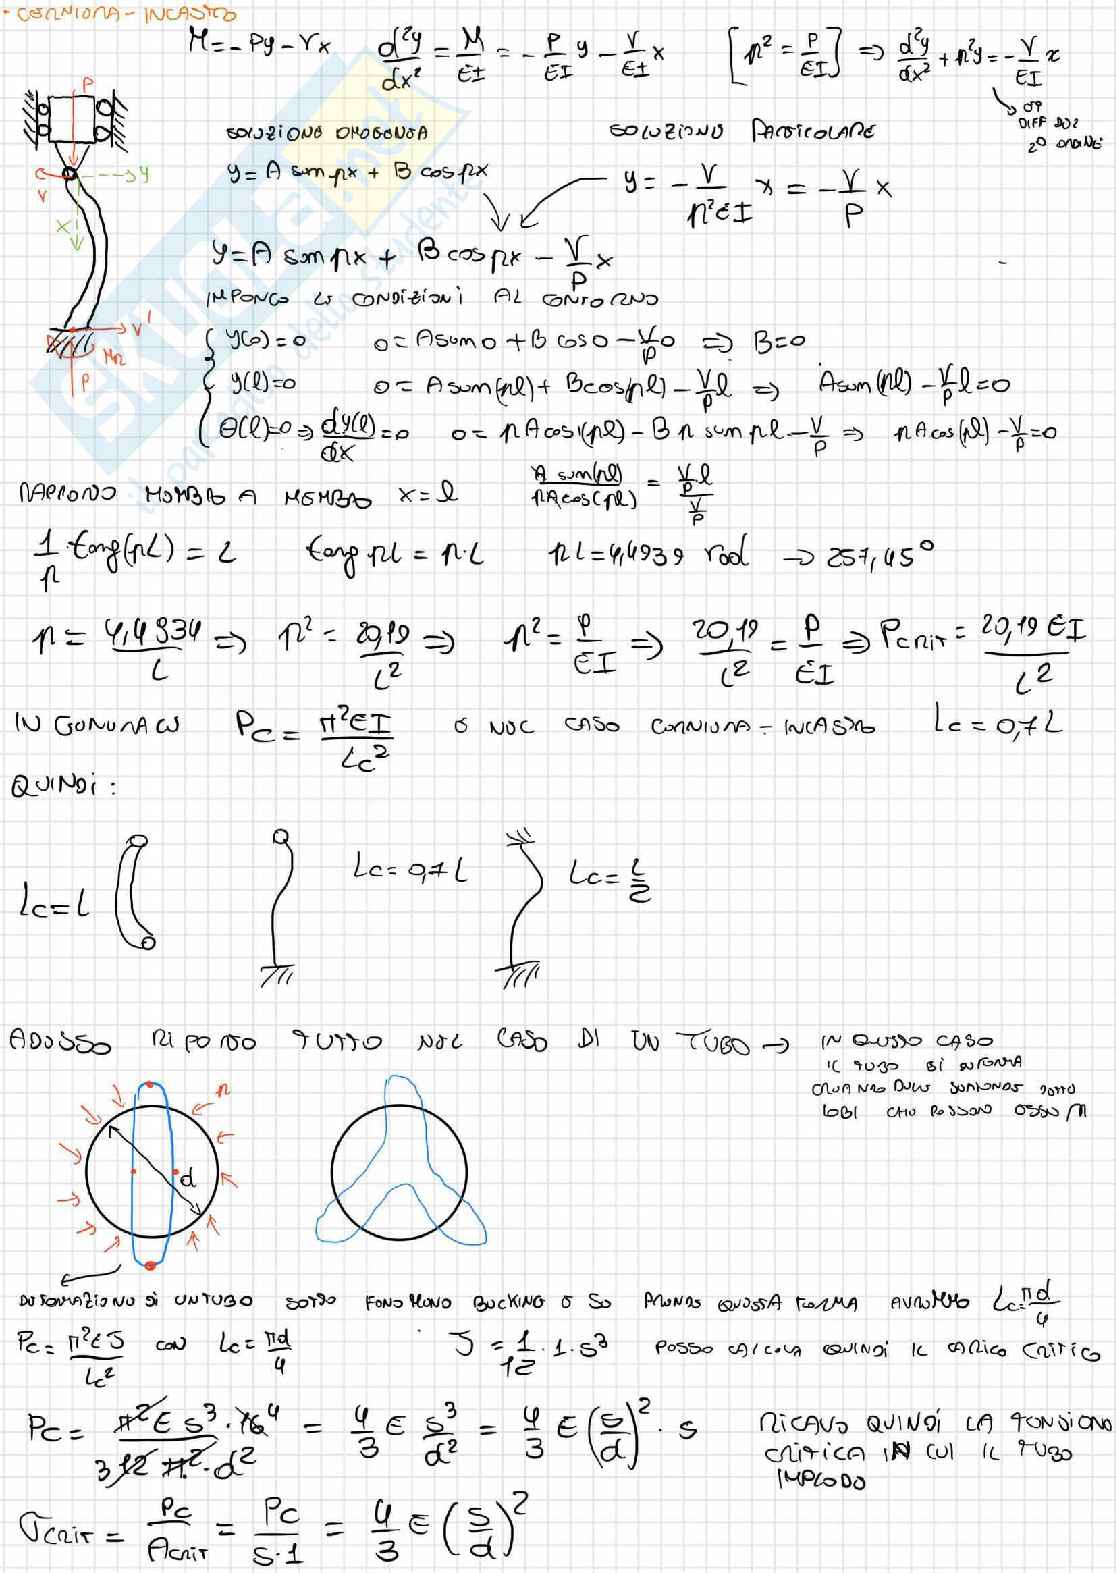 • CERNIERA - INCASTRO
M = - Py - Vx   d²y/dx² = M/EI = - P/EI y - V/EI x   [n² = P/EI] ⇒ d²y/dx² + n²y = - V/EI x
DIFF DEL
2° ORDINE
P
V
y
x
V'
MR
P
SOLUZIONE OMOGENEA   SOLUZIONE PARTICOLARE
y = A sin nx + B cos nx   y = - V/(n²EI) x = - V/P x
y = A sin nx + B cos nx - V/P x
IMPONGO LE CONDIZIONI AL CONTORNO
y(0) = 0   0 = A sin 0 + B cos 0 - V/P 0 ⇒ B = 0
y(l) = 0   0 = A sin(nl) + B cos(nl) - V/P l ⇒ A sin(nl) - V/P l = 0
θ(l) = 0 ⇒ dy(l)/dx = 0   0 = n A cos(nl) - B n sin nl - V/P ⇒ n A cos(nl) - V/P = 0
RAPPORTO MEMBRO A MEMBRO x = l   A sin(nl)/nA cos(nl) = (V/P l)/(V/P)
1/n · tang(nL) = L   tang nL = n·L   nL = 4,4939 rad → 257,45°
n = 4,4934/L ⇒ n² = 20,19/L² ⇒ n² = P/EI ⇒ 20,19/L² = P/EI ⇒ Pcrit = 20,19 EI/L²
IN GENERALE Pc = π²EI/Lc² E NEL CASO CERNIERA - INCASTRO Lc = 0,7 L
QUINDI :
Lc = L   Lc = 0,7 L   Lc = L/2
ADESSO RIPORTO TUTTO NEL CASO DI UN TUBO → IN QUESTO CASO
IL TUBO SI DEFORMA
CREANDO DELLE SEMIONDE DETTE
LOBI CHE POSSONO ESSERE M
n
d
DEFORMAZIONE DI UN TUBO SOTTO FENOMENO BUCKING E SE PRENDE QUESTA FORMA AVREMO Lc = πd/4
Pc = π²EJ/Lc² CON Lc = πd/4   J = 1/12 · 1 · s³   POSSO CALCOLA QUINDI IL CARICO CRITICO
Pc = π² E s³ · 16 4/3 12 π² · d² = 4/3 E s³/d² = 4/3 E (s/d)² · s   RICAVO QUINDI LA TENSIONE
CRITICA IN CUI IL TUBO
IMPLODE
σcrit = Pc/Acrit = Pc/s·1 = 4/3 E (s/d)²